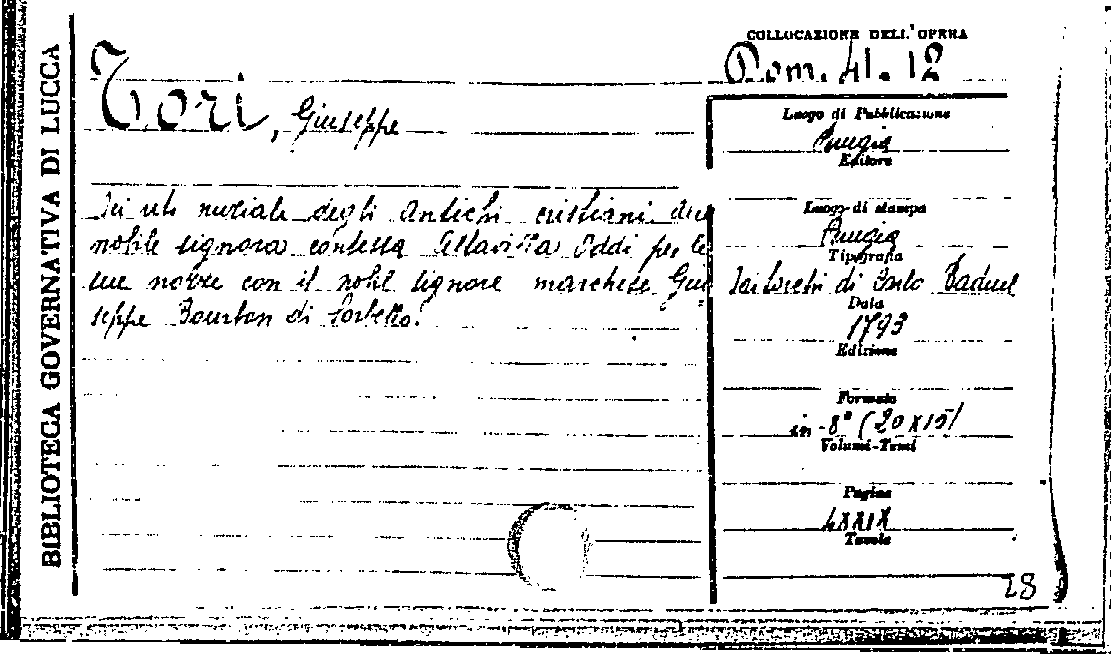 BIBLIOTECA GOVERNATIVA DI LUCCA
COLLOCAZIONE DELL'OPERA
Dom. 41. 12
Tori, Giuseppe
Dei riti nuziali degli antichi cristiani
nobile signora contessa Altavilla Oddi per le
sue nozze con il nobil signore marchese Giu
seppe Bourbon di Sorbello.
Luogo di Pubblicazione
Perugia
Editore
Luogo di stampa
Perugia
Tipografia
Dai torchi di Carlo Baduel
Data
1793
Edizione
Formato
in-8° (20x15)
Volumi-Tomi
Pagine
LXXIX
Tavole
28